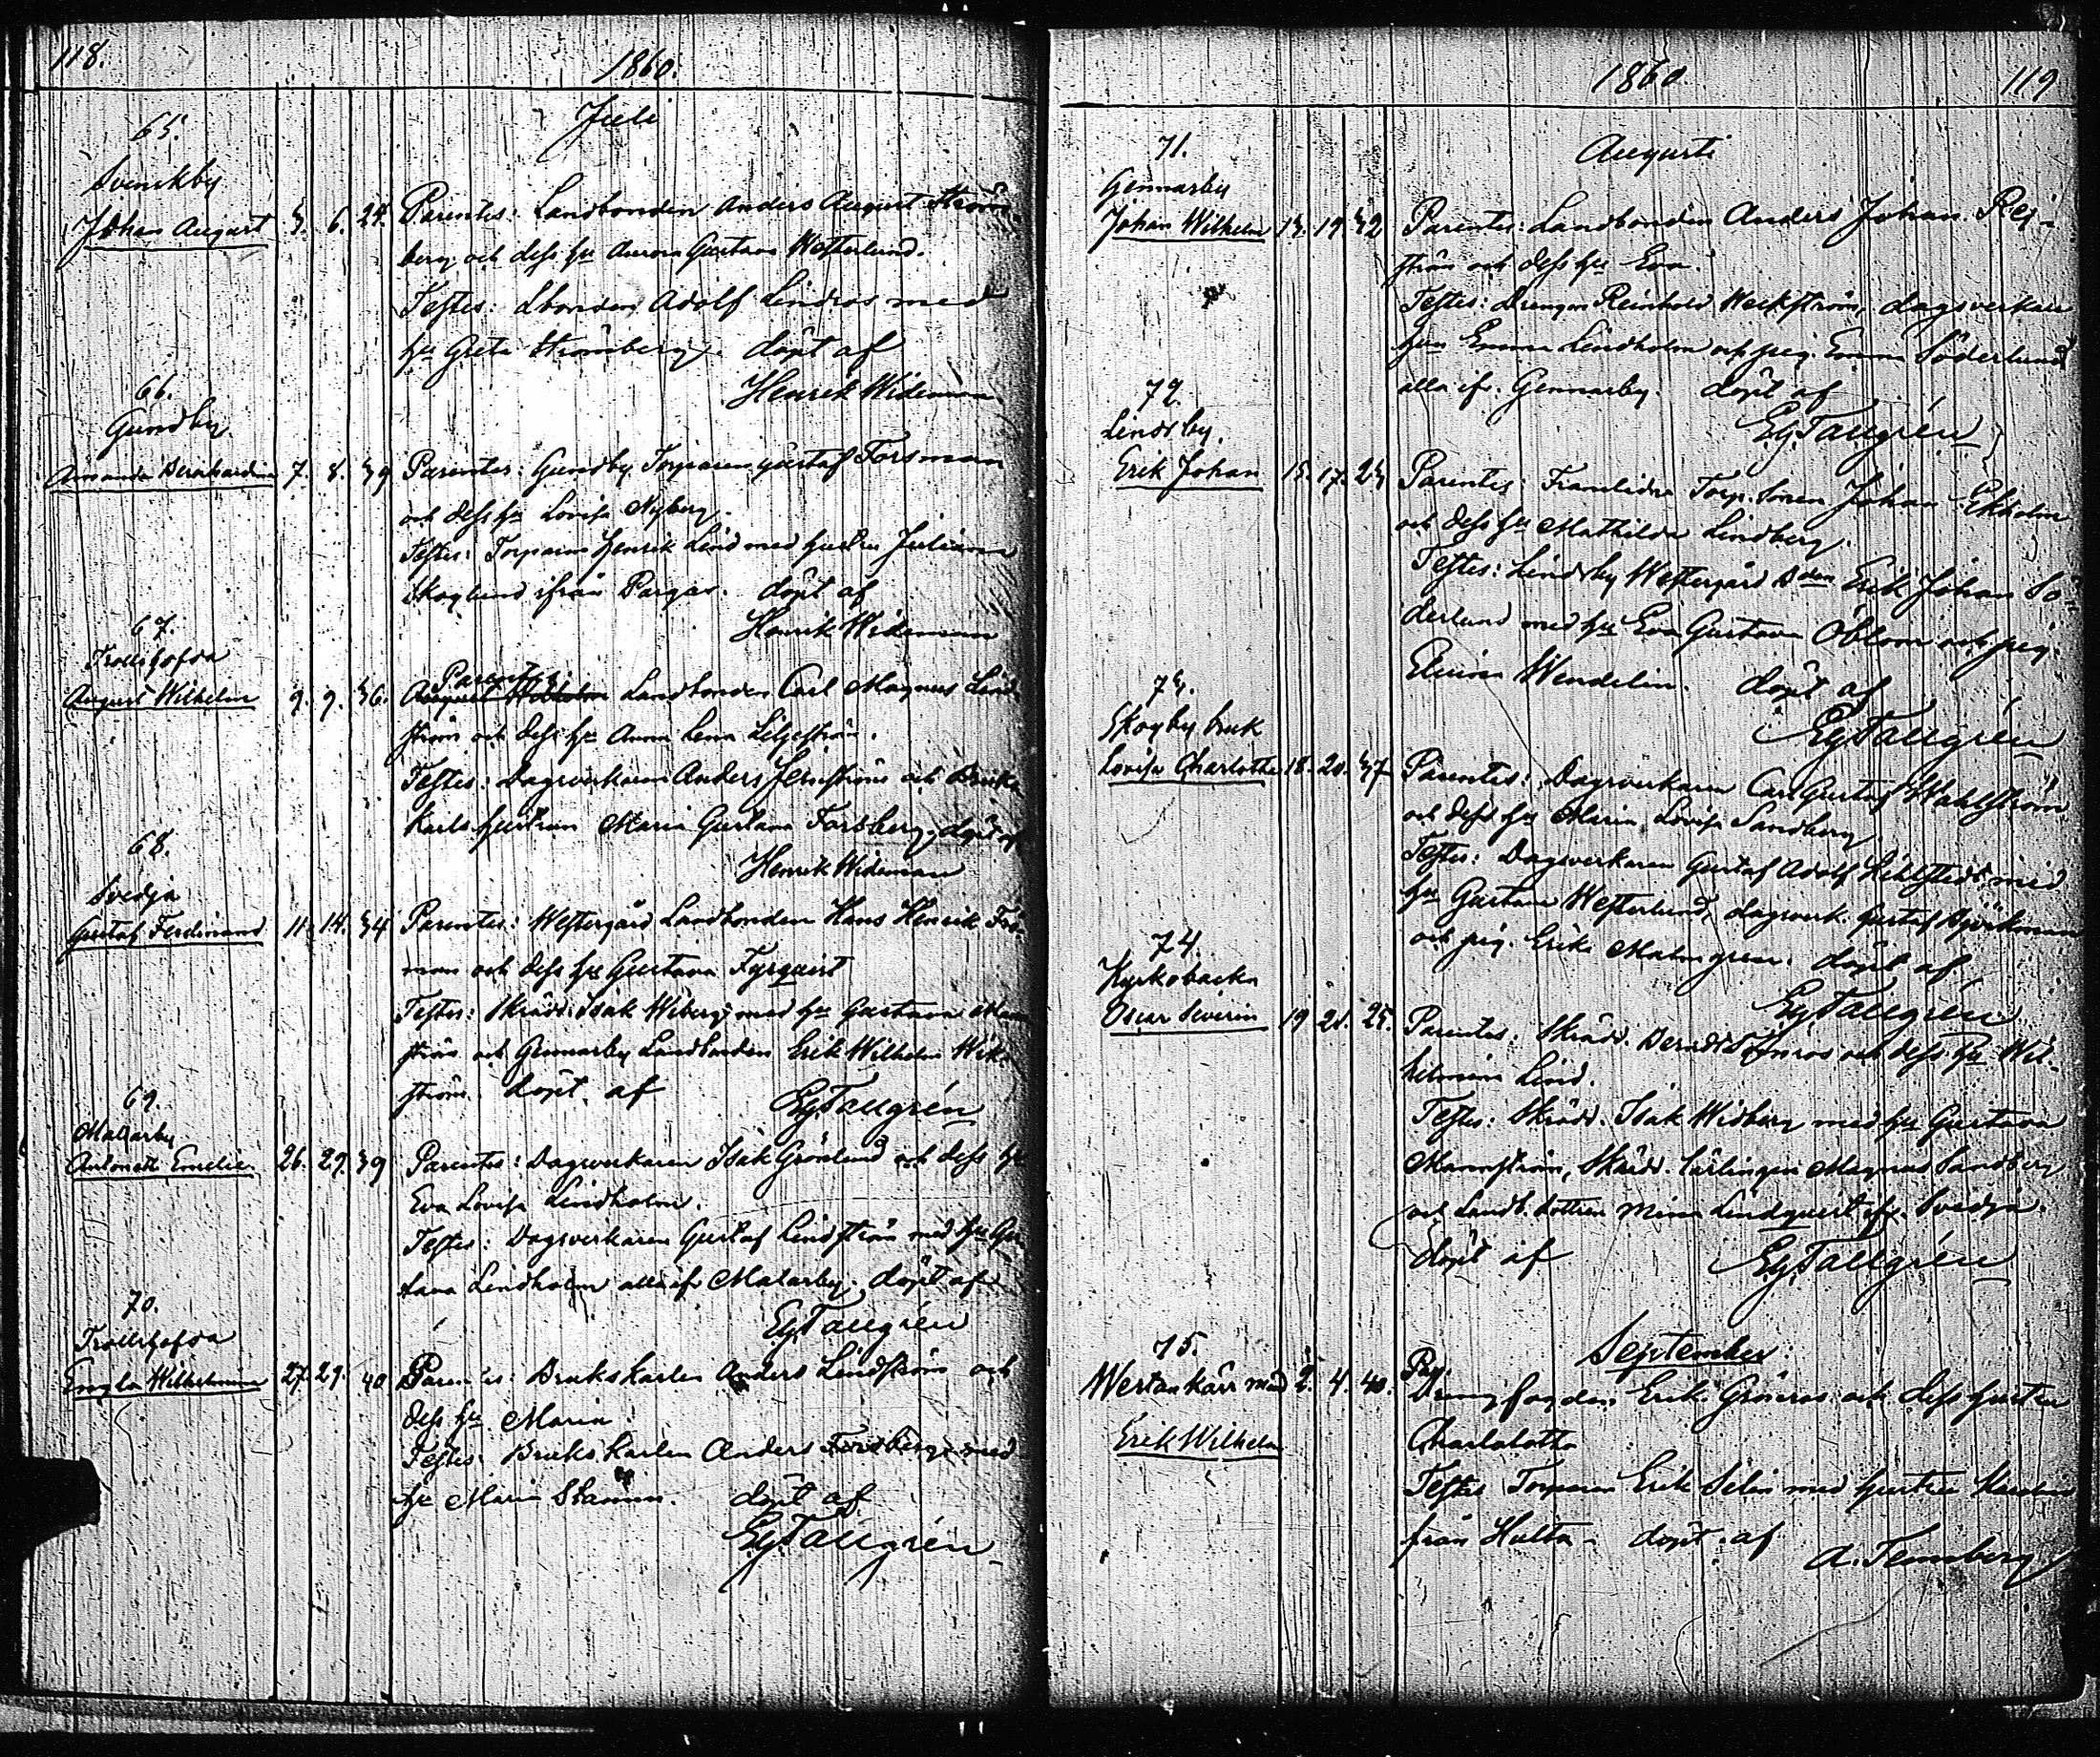 118.
1860.
Juli
65.
Svenskby
Johan August 3. 6. 24. Parentes: Landbonden Anders August Ström-
berg och dess hu Aurora Gustava Westerlund.
Testes: Lbonden Adolf Lindros med
hu Greta Strömberg. döpt af
Henrik Wideman
66.
Gundby
Amanda Bernhardina 7. 8. 39 Parentes: Gundby Torparen Gustaf Forsman
och dess hu Lovisa Nyberg.
Testes: Torparen Henrik Lind med hustru Juliana
Skoglund ifrån Pargas. döpt af
Henrik Wideman
67.
Trollshofda
August Wilhelm 9. 9. 36. Parentes: Landbonden Carl Magnus Lind-
ström och dess hu Anna Lena Liljeström.
Testes: Dagsverkaren Anders Jernström och Bruks
karls hustrun Maria Gustava Forsberg, döpt af
Henrik Wideman
68.
Svedja
Gustaf Ferdinand 11. 14. 34 Parentes: Westergård Landbonden Hans Henrik Fors-
man och dess hu Gustava Fyrquist
Testes: Skrädd. Isak Wiberg med hu Gustava Mann
ström och Gennarby Landbonden Erik Wilhelm Wik-
ström. döpt af
Eg. Tallgrén
69.
Malarby
Antonett Emelie 26. 29. 39 Parentes: Dagsverkaren Isak Grönlund och dess hu
Eva Lovisa Lindholm.
Testes: Dagsverkaren Gustaf Lindström med hu Gus
tava Lindholm alla ifr. Malarby. döpt af
Eg. Tallgrén
70.
Trollshofda
Engla Wilhelmina 27. 29. 40 Parentes: Brukskarlen Anders Lindström och
dess hu Maria
Testes: Brukskarlen Anders Forsberg med
hu Maria Stamm. döpt af
Eg. Tallgrén
1860.
119
Augusti
71.
Gennarby
Johan Wilhelm 13. 19 32 Parentes: Landbonden Anders Johan Rej-
ström och dess hu Eva.
Testes: Drengen Reinhold Weckström, dagsverkare
hun Emma Lindholm och pig. Emma Söderlund
alla ifr. Gennarby. döpt af
Eg. Tallgrén
72.
Lindsby.
Erik Johan 15. 17. 23 Parentes: Framlidne Torp. sonen Johan Ekholm
och dess hu Mathilda Lindberg.
Testes: Lindsby Westergård Bden Erik Johan Sö-
derlund med hu Eva Gustava Öblom och pig.
Elmina Wendelin. döpt af
Eg. Tallgrén
73.
Skogby bruk
Lovisa Charlotta 18. 20. 37 Parentes: Dagsverkaren Carl Gustaf Wahlström
och dess hu Maria Lovisa Sandberg
Testes: Dagsverkaren Gustaf Adolf Kihlstedt med
hu Gustava Westerlund, dagsverk. Gustaf Björkman
och pig. Erika Malmgren. döpt af
Eg. Tallgrén
74.
Kyrkobacka
Oscar Severin 19 21. 25. Parentes: Skrädd. Berndt och dess hu Wil-
helmina Lind.
Testes: Skrädd. Isak Widberg med hu Gustava
Mannström, Skrädd. lärlingen Magnus Sandberg
och Landb. dottren Mina Lindquist ifr. Svedja.
döpt af Eg. Tallgrén
September.
75.
Wertankärr med 2. 4. 40. Drengfogden Erik Grönros och dess hustru
Erik Wilhelm
Charlotta
Testes Torparen Erik Selin med hustru
från Hulta - döpt af A. Tennberg